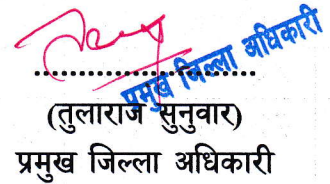 प्रमुख जिल्ला अधिकारी
(तुलाराज सुनुवार)
प्रमुख जिल्ला अधिकारी